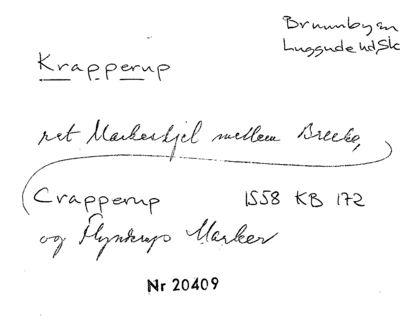 Brunnby sn
Luggude hd, Sk
Krapperup
ret Markeskjel mellem Brecke,
Crapperup 1558 KB 172
og Flyndrups Marker
Nr 20409